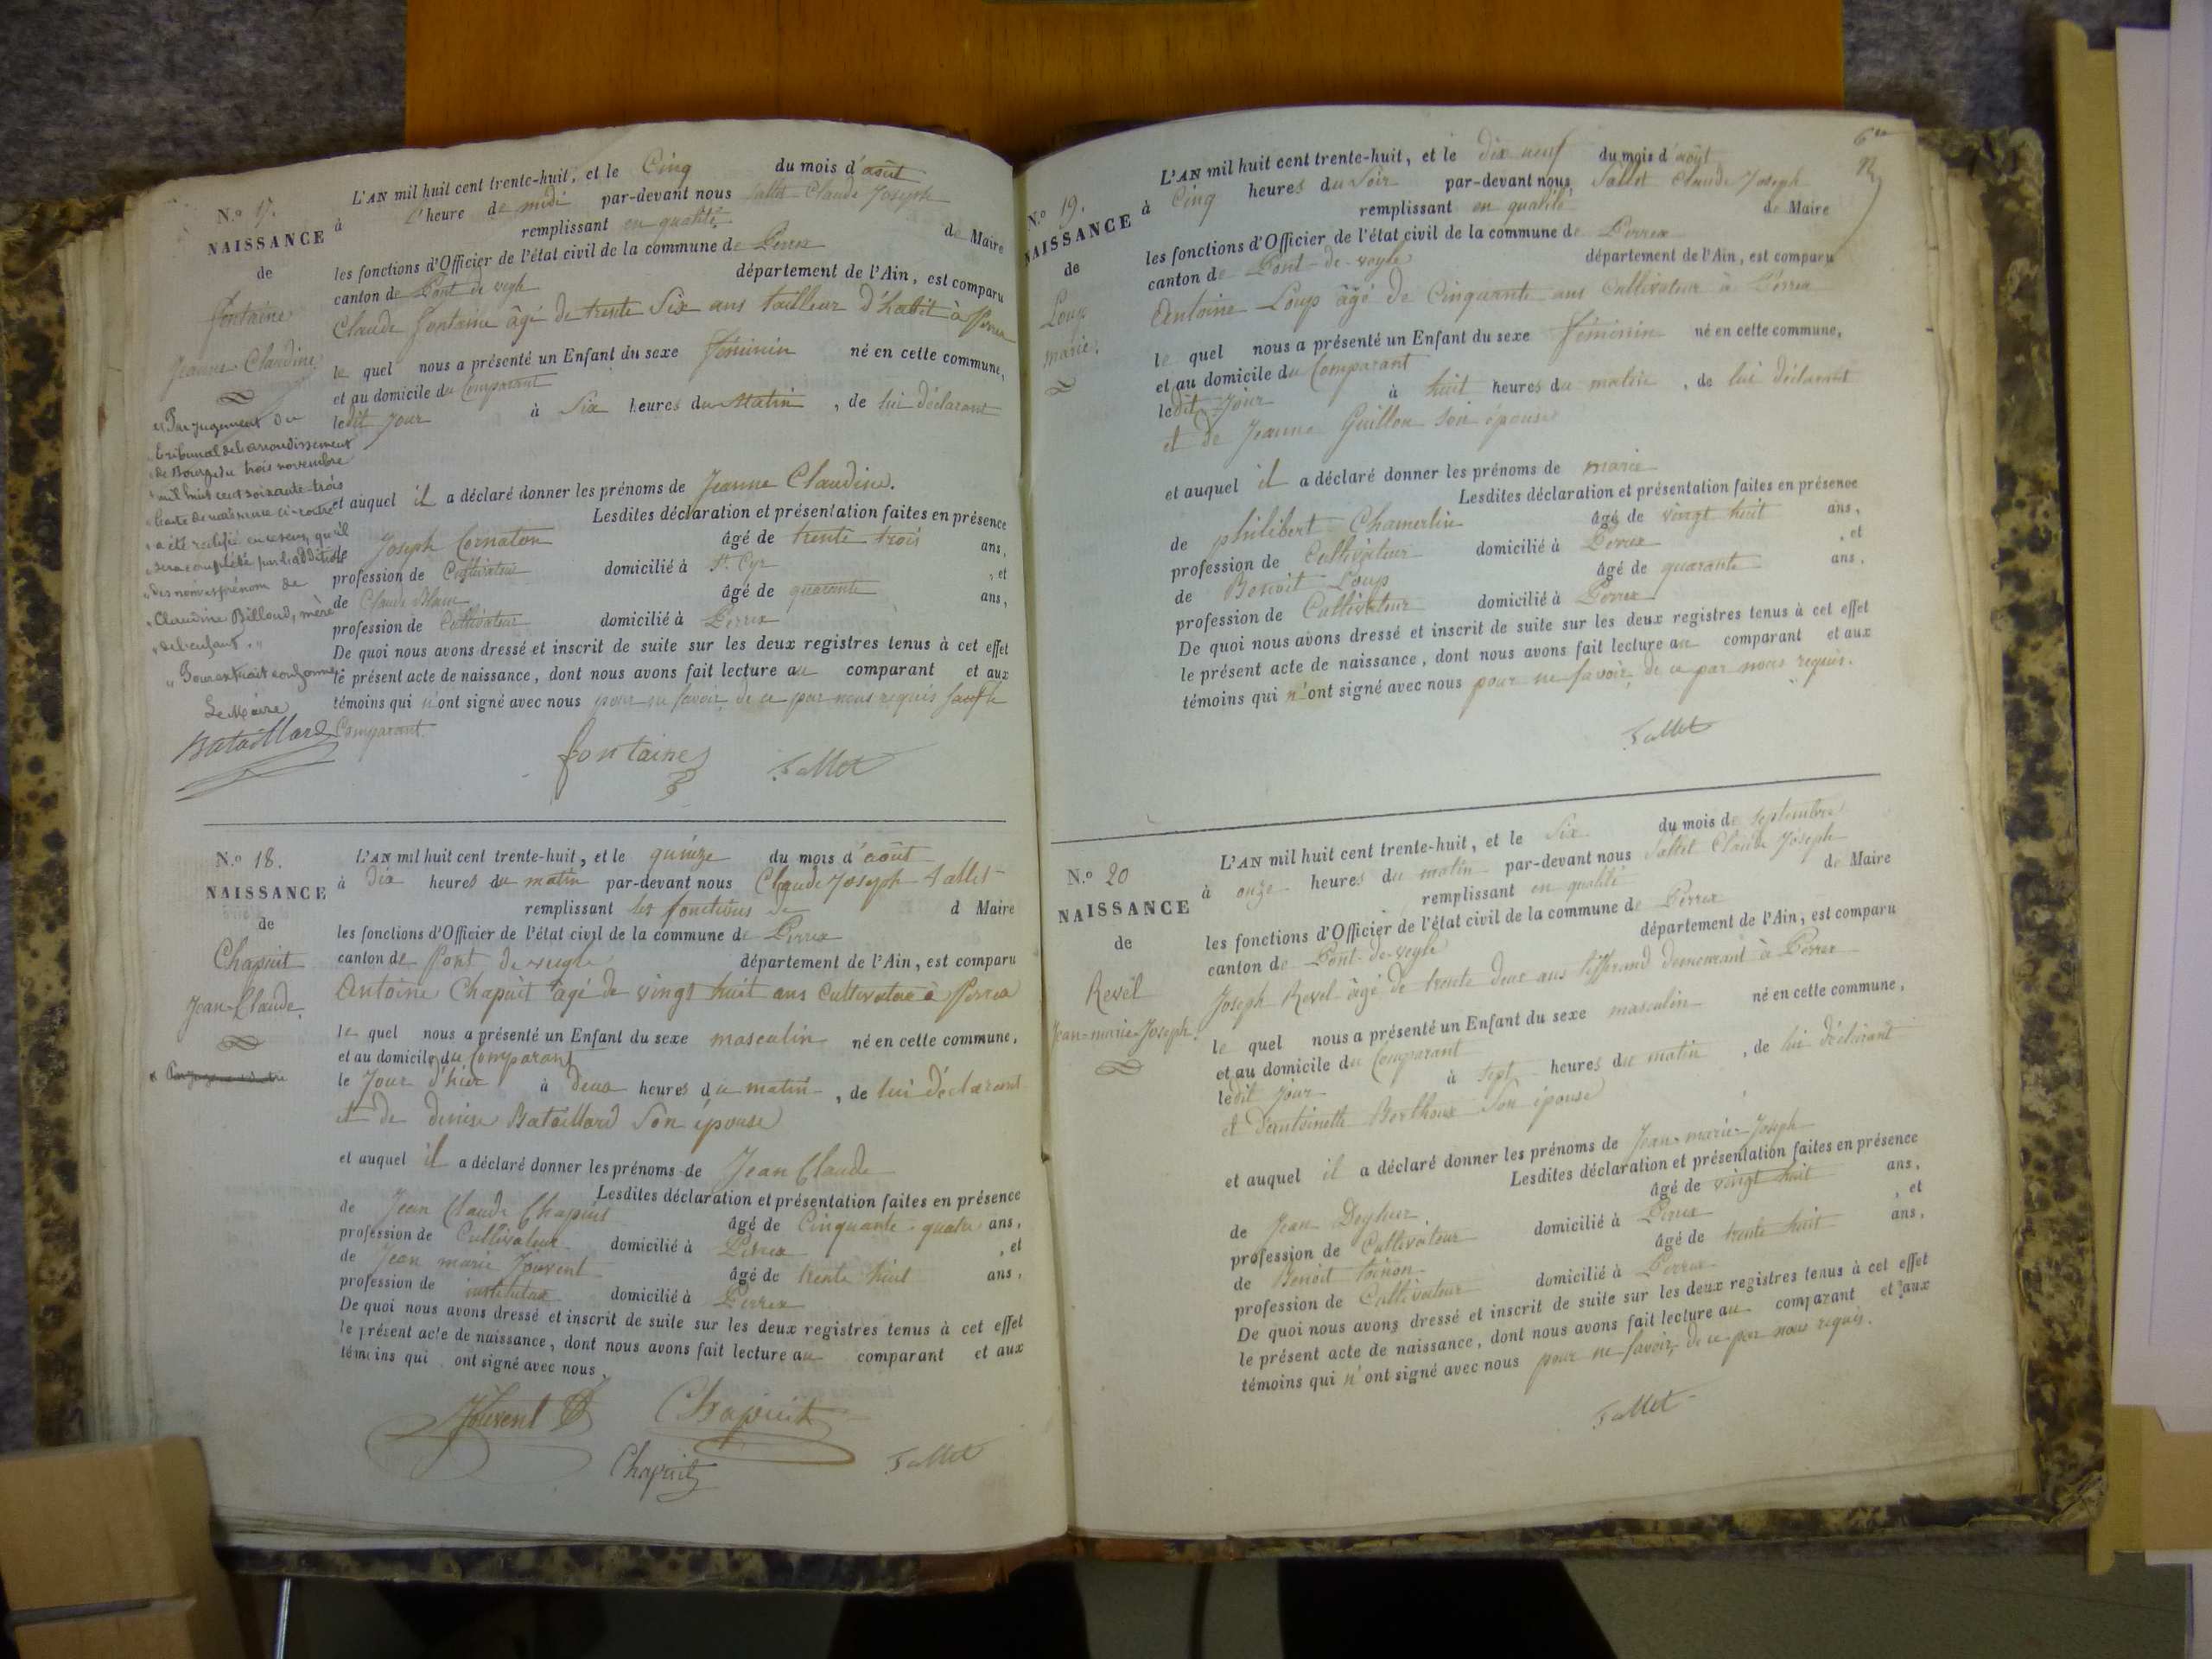 N.º 17.
NAISSANCE
de
fontaine
Jeanne Claudine
"Par jugement du
"tribunal de l'arrondissement
"de Bourg du trois novembre
"mil huit cent soixante-trois
"l'acte de naissance ci-contre
"a été rectifié en ce sens, qu'il
"sera complété par l'addition
"des nom et prénom de
"Claudine Billoud, mère
"de l'enfant."
"Pour extrait conforme
Le Maire
Bataillard
L'AN mil huit cent trente-huit, et le Cinq du mois d'août
à l'heure de midi par-devant nous Sallet Claude Joseph
remplissant en qualité de Maire
les fonctions d'Officier de l'état civil de la commune de Perrex
canton de Pont de veyle département de l'Ain, est comparu
Claude fontaine âgé de trente Six ans tailleur d'habit à Perrex
le quel nous a présenté un Enfant du sexe féminin né en cette commune,
et au domicile du Comparant
ledit jour à Six heures du Matin, de lui déclarant
et auquel il a déclaré donner les prénoms de Jeanne Claudine.
Lesdites déclaration et présentation faites en présence
de Joseph Cornaton âgé de trente trois ans,
profession de Cultivateur domicilié à St. Cyr, et
de Claude Blanc âgé de quarante ans,
profession de Cultivateur domicilié à Perrex
De quoi nous avons dressé et inscrit de suite sur les deux registres tenus à cet effet
le présent acte de naissance, dont nous avons fait lecture au comparant et aux
témoins qui n'ont signé avec nous pour ne savoir, de ce par nous requis sauf le
Comparant.
fontaine Sallet
N.º 18.
NAISSANCE
de
Chapuit
Jean-Claude.
L'AN mil huit cent trente-huit, et le quinze du mois d'août
à Dix heures du matin par-devant nous Claude Joseph Sallet
remplissant les fonctions de d Maire
les fonctions d'Officier de l'état civil de la commune de Perrex
canton de Pont de veyle département de l'Ain, est comparu
Antoine Chapuit âgé de vingt huit ans Cultivateur à Perrex
le quel nous a présenté un Enfant du sexe masculin né en cette commune,
et au domicile du Comparant
le Jour d'hier à deux heures du matin, de lui déclarant
et de denise Bataillard Son épouse
et auquel il a déclaré donner les prénoms de Jean Claude
Lesdites déclaration et présentation faites en présence
de Jean Claude Chapuit âgé de Cinquante-quatre ans,
profession de Cultivateur domicilié à Perrex, et
de Jean marie Jouvent âgé de trente huit ans,
profession de instituteur domicilié à Perrex
De quoi nous avons dressé et inscrit de suite sur les deux registres tenus à cet effet
le présent acte de naissance, dont nous avons fait lecture au comparant et aux
témoins qui ont signé avec nous.
Jouvent Chapuit
Chapuit Sallet
N.º 19.
NAISSANCE
de
Loup
marie.
L'AN mil huit cent trente-huit, et le dix neuf du mois d'août
à Cinq heures du Soir par-devant nous, Sallet Claude Joseph
remplissant en qualité de Maire
les fonctions d'Officier de l'état civil de la commune de Perrex
canton de Pont-de-veyle département de l'Ain, est comparu
Antoine Loup âgé de Cinquante ans Cultivateur à Perrex
le quel nous a présenté un Enfant du sexe féminin né en cette commune,
et au domicile du Comparant
ledit Jour à huit heures du matin, de lui déclarant
et de Jeanne Guillon Son épouse
et auquel il a déclaré donner les prénoms de marie
Lesdites déclaration et présentation faites en présence
de philibert Chamerlin âgé de vingt huit ans,
profession de Cultivateur domicilié à Perrex, et
de Benoit Loup âgé de quarante ans,
profession de Cultivateur domicilié à Perrex
De quoi nous avons dressé et inscrit de suite sur les deux registres tenus à cet effet
le présent acte de naissance, dont nous avons fait lecture au comparant et aux
témoins qui n'ont signé avec nous pour ne savoir, de ce par nous requis.
Sallet
N.º 20
NAISSANCE
de
Revel
Jean-marie-Joseph.
L'AN mil huit cent trente-huit, et le Six du mois de Septembre
à onze heures du matin par-devant nous Sallet Claude Joseph
remplissant en qualité de Maire
les fonctions d'Officier de l'état civil de la commune de Perrex
canton de Pont-de-veyle département de l'Ain, est comparu
Joseph Revel âgé de trente deux ans tisserand demeurant à Perrex
le quel nous a présenté un Enfant du sexe masculin né en cette commune,
et au domicile du Comparant
ledit Jour à Sept heures du matin, de lui déclarant
et d'antoinette Berthoux Son épouse
et auquel il a déclaré donner les prénoms de Jean-marie-Joseph
Lesdites déclaration et présentation faites en présence
de Jean âgé de vingt huit ans,
profession de Cultivateur domicilié à Perrex, et
de Benoit âgé de trente huit ans,
profession de Cultivateur domicilié à Perrex
De quoi nous avons dressé et inscrit de suite sur les deux registres tenus à cet effet
le présent acte de naissance, dont nous avons fait lecture au comparant et aux
témoins qui n'ont signé avec nous pour ne savoir, de ce par nous requis.
Sallet